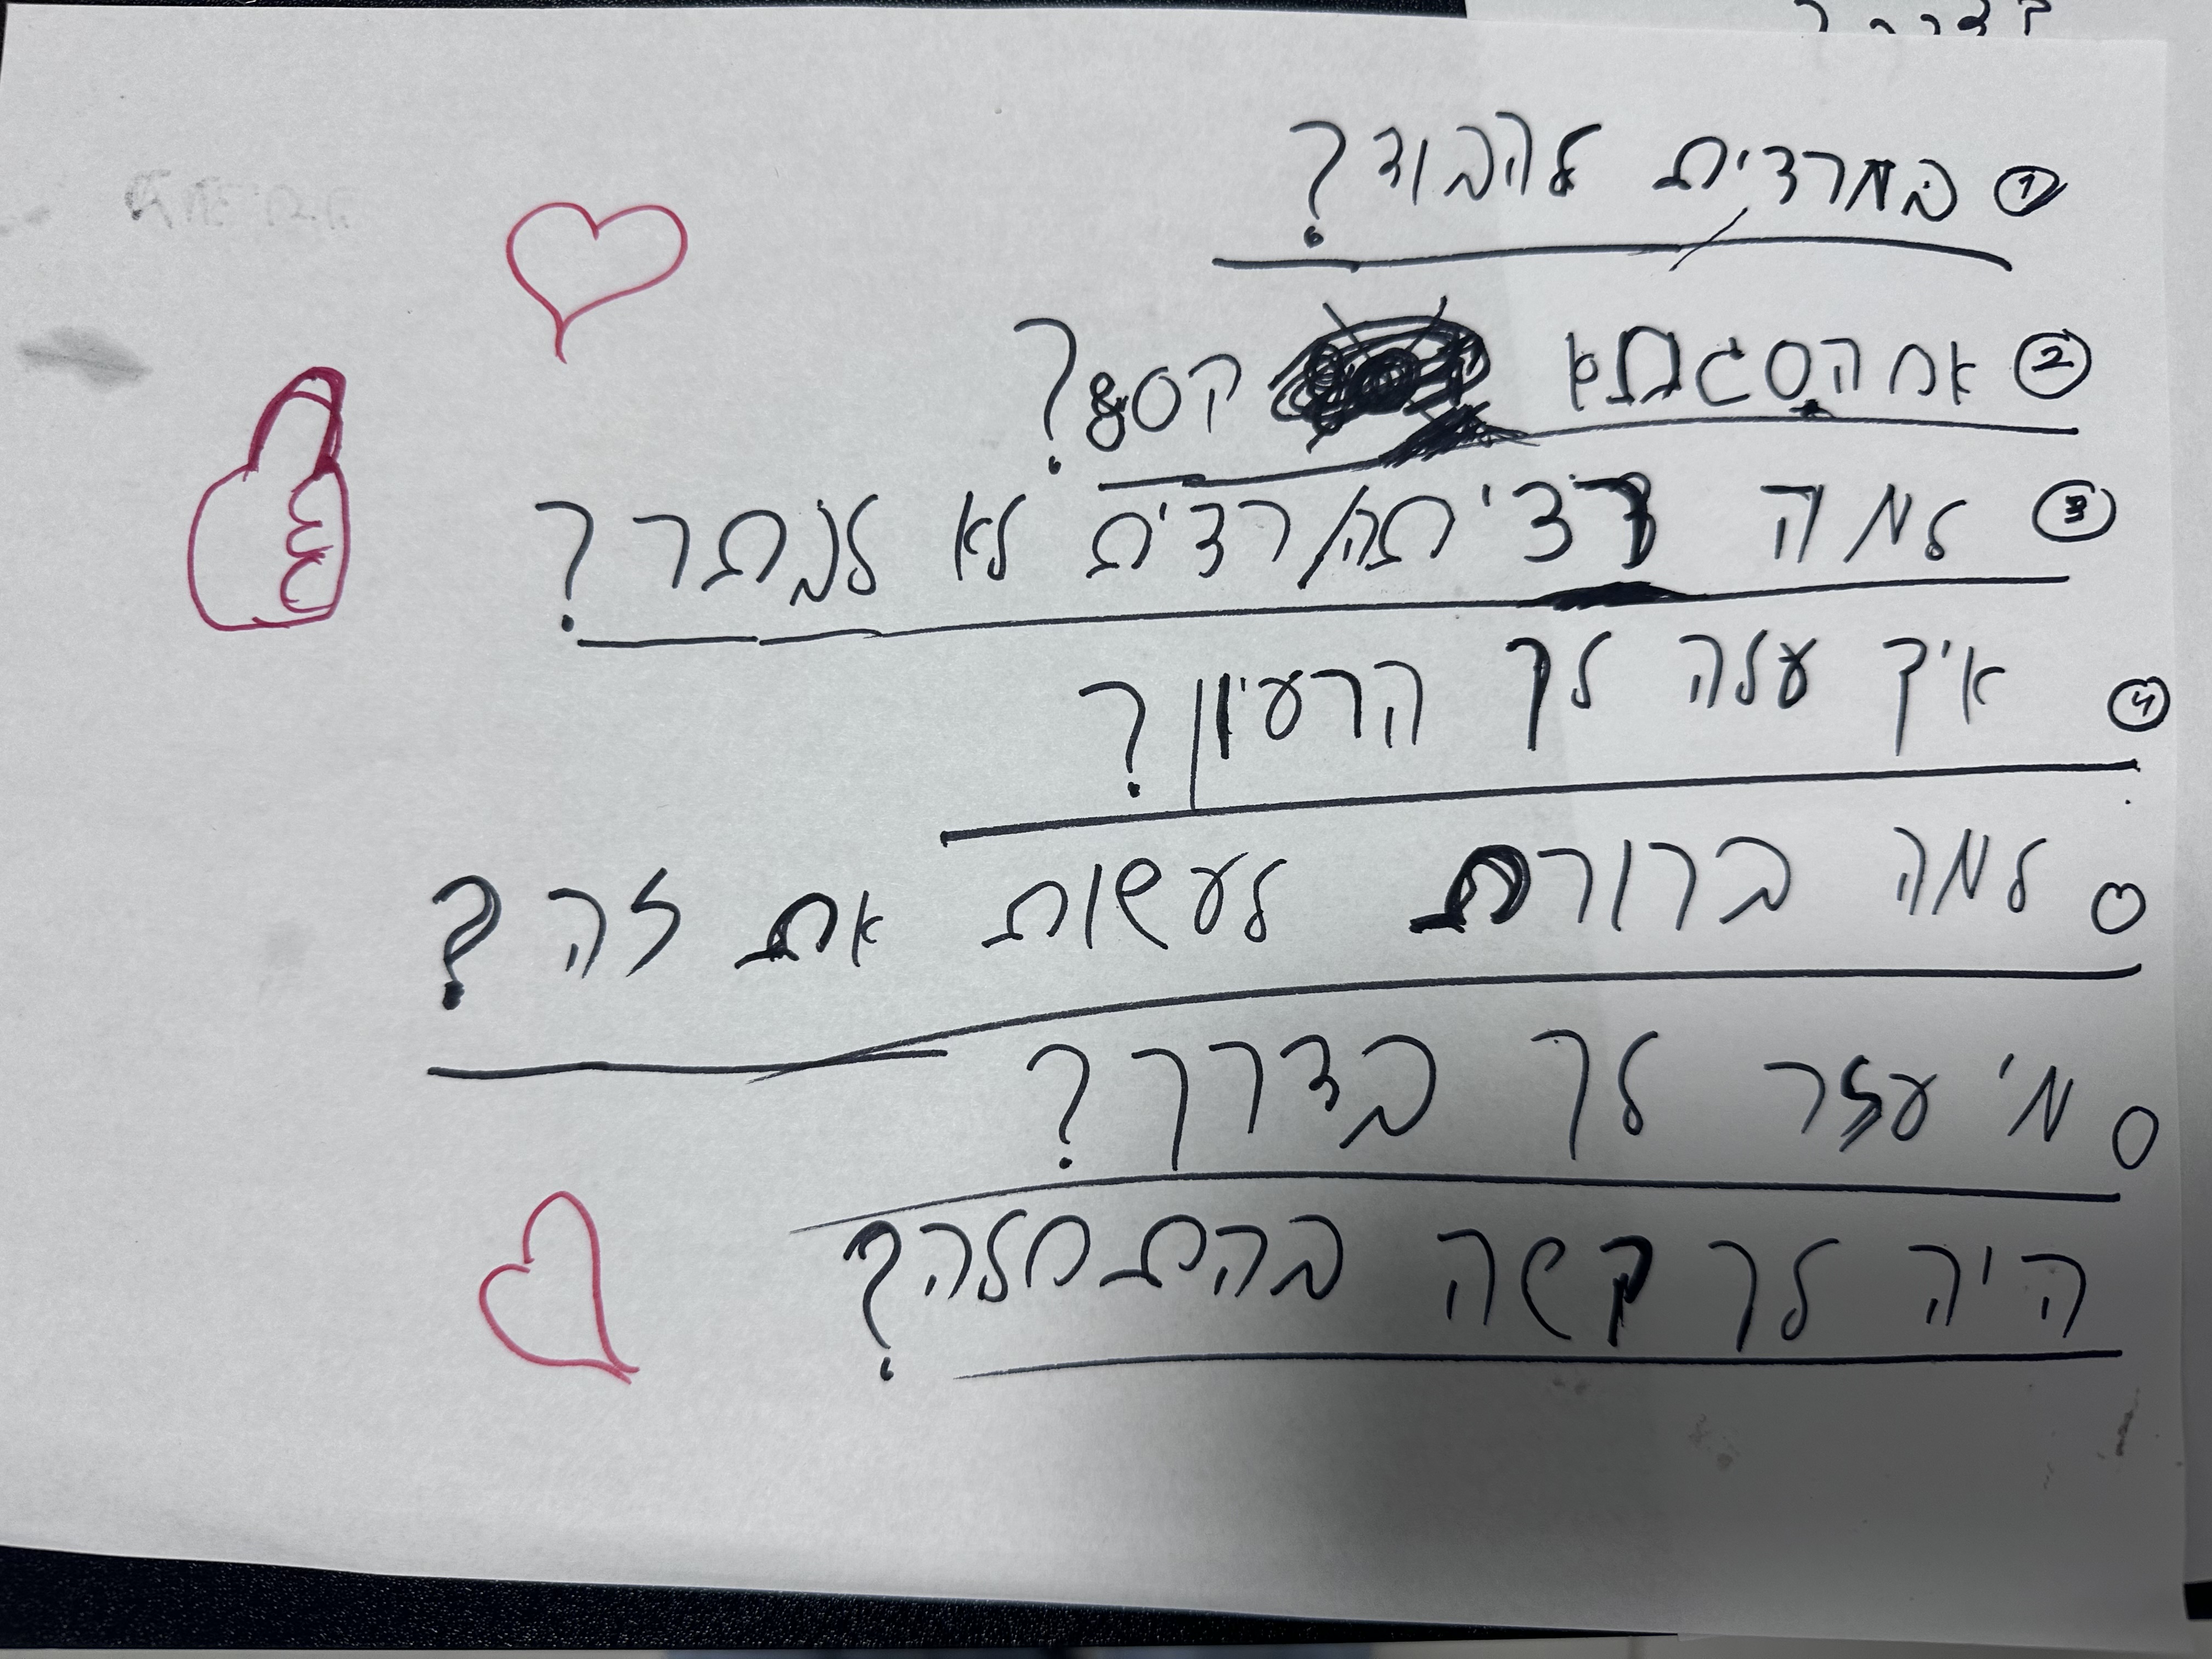 ① במרדית להבוד?
② אח הסגת קסם?
③ למה רצית/רצית לא לנתר?
④ איך עלה לך הרעיון?
למה ברורת לעשות את זה?
מי עזר לך בדרך?
היה לך קשה בהתחלה?